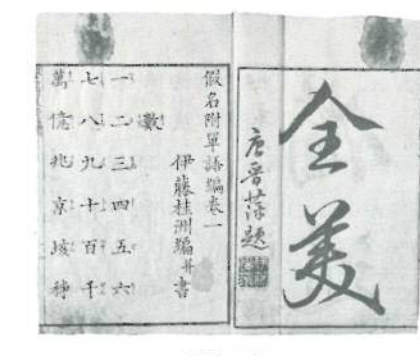 全美
唐晋萍題
假名附單語編卷一
伊藤桂洲編并書
數
一二三四五六
七八九十百千
萬億兆京垓秭